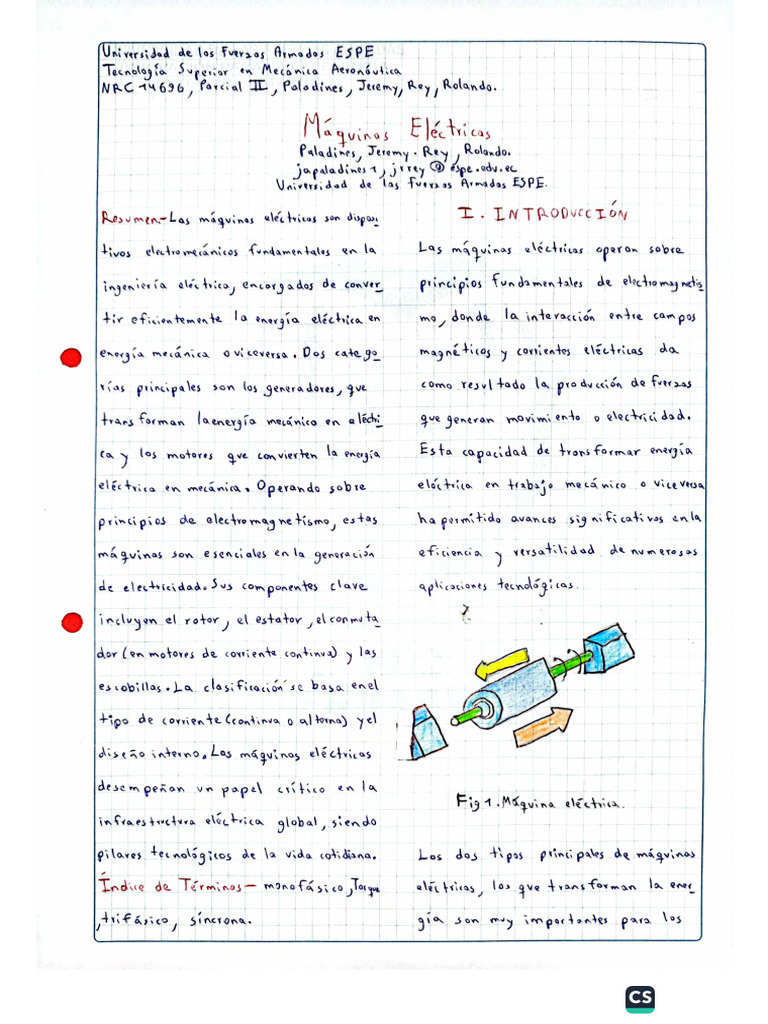 Universidad de las Fuerzas Armadas ESPE
Tecnología Superior en Mecánica Aeronáutica
NRC 14696, Parcial II, Paladines, Jeremy, Rey, Rolando.
Máquinas Eléctricas
Paladines, Jeremy. Rey, Rolando.
japaladines1, jrrey @ espe.edu.ec
Universidad de las fuerzas Armadas ESPE.
Resumen.- Las máquinas eléctricas son disposi
tivos electromecánicos fundamentales en la
ingeniería eléctrica, encargados de conver
tir eficientemente la energía eléctrica en
energía mecánica o viceversa. Dos catego
rías principales son los generadores, que
transforman la energía mecánica en eléctri
ca y los motores que convierten la energía
eléctrica en mecánica. Operando sobre
principios de electromagnetismo, estas
máquinas son esenciales en la generación
de electricidad. Sus componentes clave
incluyen el rotor, el estator, el conmuta
dor (en motores de corriente continua) y las
escobillas. La clasificación se basa en el
tipo de corriente (continua o alterna) y el
diseño interno. Las máquinas eléctricas
desempeñan un papel crítico en la
infraestructura eléctrica global, siendo
pilares tecnológicos de la vida cotidiana.
Índice de Términos- monofásico, Torque
, trifásico, síncrona.
I. INTRODUCCIÓN
Las máquinas eléctricas operan sobre
principios fundamentales de electromagnetis
mo, donde la interacción entre campos
magnéticos y corrientes eléctricas da
como resultado la producción de fuerzas
que generan movimiento o electricidad.
Esta capacidad de transformar energía
eléctrica en trabajo mecánico o viceversa
ha permitido avances significativos en la
eficiencia y versatilidad de numerosas
aplicaciones tecnológicas.
Fig 1. Máquina eléctrica.
Los dos tipos principales de máquinas
eléctricas, los que transforman la ener
gía son muy importantes para los
CS